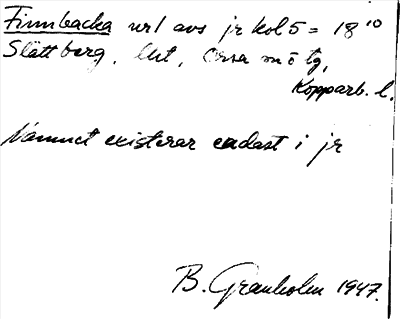 Finnbacka nr 1 avs jr kol 5 = 18¹⁰
Slättberg, Utt, Orsa m ö tg,
Kopparb. l.
Namnet existerar endast i jr
B. Granholm 1947.